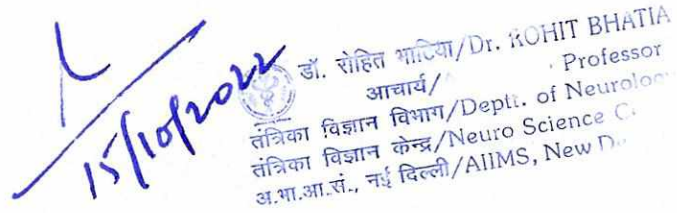 15/10/2022
डॉ. रोहित भाटिया/Dr. ROHIT BHATIA
आचार्य/ Professor
तंत्रिका विज्ञान विभाग/Deptt. of Neurolo
तंत्रिका विज्ञान केन्द्र/Neuro Science C
अ.भा.आ.सं., नई दिल्ली/AIIMS, New D